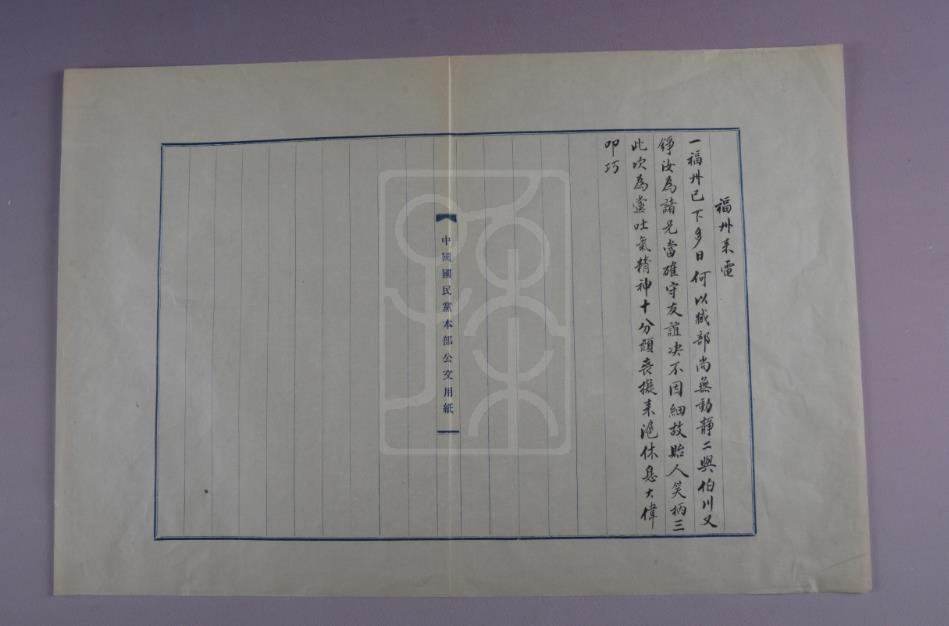 福州来電
一福州已下多日何以臧部尚無動靜二與伯川又
錚汝為諸兄當確守友誼决不因細故貽人笑柄三
此次為黨吐氣精神十分頹喪擬来滬休息大偉
叩巧
中國國民黨本部公文用紙